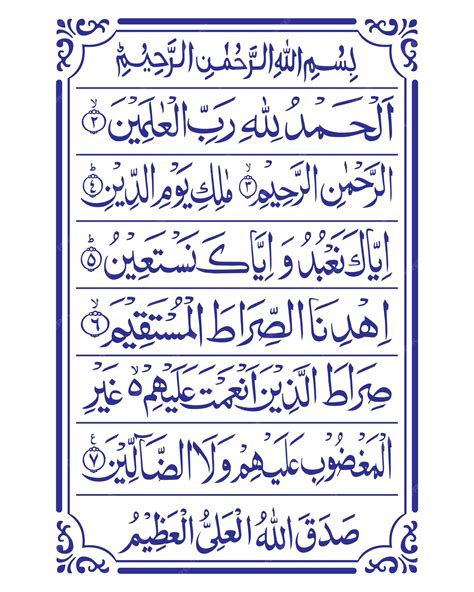 بِسْمِ اللهِ الرَّحْمٰنِ الرَّحِيْمِ
اَلْحَمْدُ لِلّٰهِ رَبِّ الْعٰلَمِيْنَ ۙ﴿۲﴾
الرَّحْمٰنِ الرَّحِيْمِ ۙ﴿۳﴾ مٰلِكِ يَوْمِ الدِّيْنِ ؕ﴿۴﴾
اِيَّاكَ نَعْبُدُ وَ اِيَّاكَ نَسْتَعِيْنُ ؕ﴿۵﴾
اِهْدِنَا الصِّرَاطَ الْمُسْتَقِيْمَ ۙ﴿۶﴾
صِرَاطَ الَّذِيْنَ اَنْعَمْتَ عَلَيْهِمْ ۙ۵ غَيْرِ
الْمَغْضُوْبِ عَلَيْهِمْ وَلَا الضَّآلِّيْنَ ﴿۷﴾
صَدَقَ اللهُ الْعَلِيُّ الْعَظِيْمُ